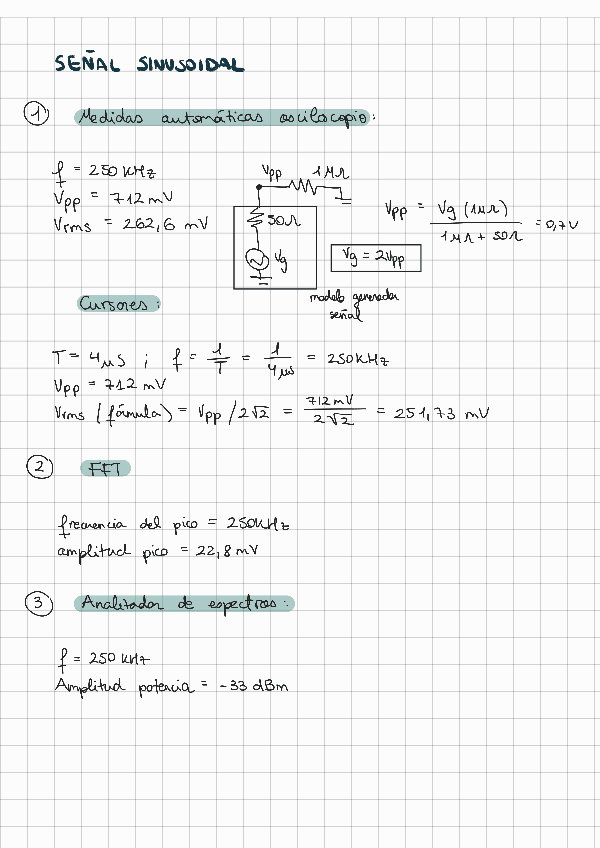 SEÑAL SINUSOIDAL
1 Medidas automáticas osciloscopio:
f = 250 KHz
Vpp = 712 mV
Vrms = 262,6 mV
Vpp 1MΩ
50Ω
Vg
Vg = 2Vpp
modelo generador
señal
Vpp = Vg (1MΩ) / 1MΩ + 50Ω = 0,7V
Cursores:
T = 4μs ; f = 1/T = 1/4μs = 250KHz
Vpp = 712 mV
Vrms (fórmula) = Vpp/2√2 = 712mV/2√2 = 251,73 mV
2 FFT
frecuencia del pico = 250KHz
amplitud pico = 22,8 mV
3 Analizador de espectros:
f = 250 KHz
Amplitud potencia = -33 dBm